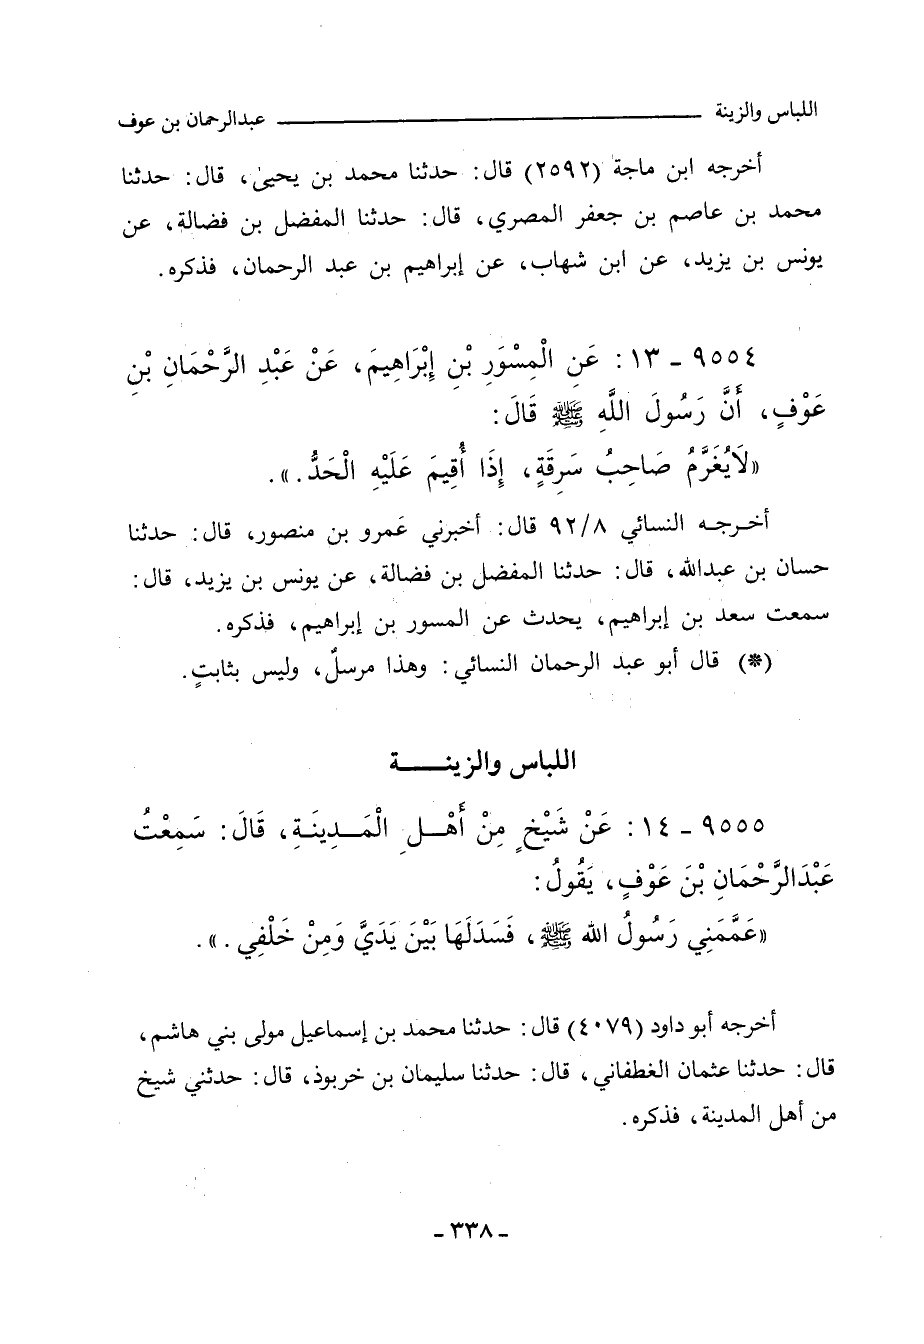 اللباس والزينة ــــــــــــ عبدالرحمان بن عوف
أخرجه ابن ماجة (٢٥٩٢) قال: حدثنا محمد بن يحيىٰ، قال: حدثنا
محمد بن عاصم بن جعفر المصري، قال: حدثنا المفضل بن فضالة، عن
يونس بن يزيد، عن ابن شهاب، عن إبراهيم بن عبد الرحمان، فذكره.
٩٥٥٤ - ١٣: عَنِ الْمِسْوَرِ بْنِ إِبْرَاهِيمَ، عَنْ عَبْدِ الرَّحْمَانِ بْنِ
عَوْفٍ، أَنَّ رَسُولَ اللَّهِ ﷺ قَالَ:
«لَايُغَرَّمُ صَاحِبُ سَرِقَةٍ، إِذَا أُقِيمَ عَلَيْهِ الْحَدُّ.».
أخـرجـه النسائي ٩٢/٨ قال: أخبرني عَمرو بن منصور، قال: حدثنا
حسان بن عبدالله، قال: حدثنا المفضل بن فضالة، عن يونس بن يزيد، قال:
سمعت سعد بن إبراهيم، يحدث عن المسور بن إبراهيم، فذكره.
(*) قال أبو عبد الرحمان النسائي: وهذا مرسلٌ، وليس بثابتٍ.
اللباس والزينـــــة
٩٥٥٥ - ١٤: عَنْ شَيْخٍ مِنْ أَهْـلِ الْمَـدِينَـةِ، قَالَ: سَمِعْتُ
عَبْدَالرَّحْمَانِ بْنَ عَوْفٍ، يَقُولُ:
«عَمَّمَنِي رَسُولُ الله ﷺ، فَسَدَلَهَا بَيْنَ يَدَيَّ وَمِنْ خَلْفِي.».
أخرجه أبو داود (٤٠٧٩) قال: حدثنا محمد بن إسماعيل مولى بني هاشم،
قال: حدثنا عثمان الغطفاني، قال: حدثنا سليمان بن خربوذ، قال: حدثني شيخ
من أهل المدينة، فذكره.
- ٣٣٨ -